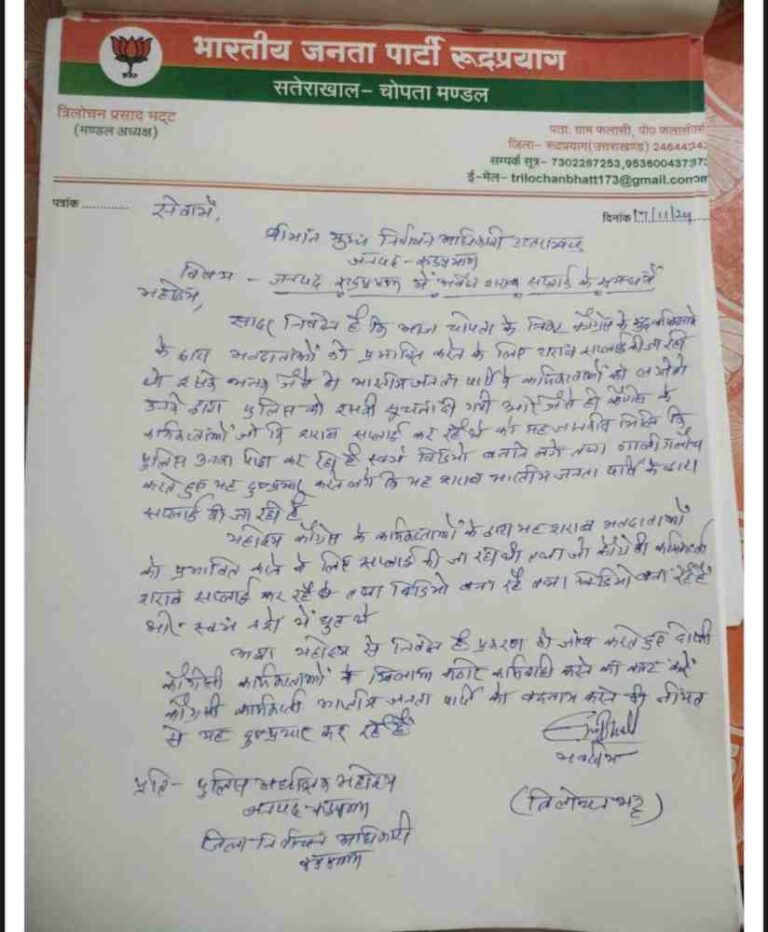 भारतीय जनता पार्टी रूद्रप्रयाग
सतेराखाल- चोपता मण्डल
त्रिलोचन प्रसाद भट्ट
(मण्डल अध्यक्ष)
पता: ग्राम फलासी, पो0
जिला- रूद्रप्रयाग(उत्तराखण्ड)
सम्पर्क सूत्र- 7302287253,
ई-मेल- trilochanbhatt173@gmail.com
पत्रांक ............
दिनांक
सेवामें,
श्रीमान मुख्य निर्वाचन अधिकारी
जनपद - रूद्रप्रयाग
विषय - जनपद रूद्रप्रयाग में अवैध शराब सप्लाई के सम्बन्ध में
महोदय,
सादर निवेदन है कि चोपता के निकट कांग्रेस के कुछ
के द्वारा मतदाताओं को प्रभावित करने के लिए शराब सप्लाई की जा रही
थी इसकी भनक जैसे ही भारतीय जनता पार्टी के कार्यकर्ताओं को लगी तो
उनके द्वारा पुलिस को इसकी सूचना दी गयी और जैसे ही कांग्रेस के
कार्यकर्ताओं जो कि शराब सप्लाई कर रहे थे को यह कि
पुलिस उनका पीछा कर रही है स्वयं विडियो बनाने लगे तथा गाली गलौच
करते हुए यह दुष्प्रचार करने लगे कि यह शराब भारतीय जनता पार्टी के द्वारा
सप्लाई की जा रही है
महोदय कांग्रेस के कार्यकर्ताओं के द्वारा यह शराब मतदाताओं
को प्रभावित करने के लिए सप्लाई की जा रही थी तथा जो कांग्रेसी कार्यकर्ता
शराब सप्लाई कर रहे थे तथा विडियो बना रहे तथा विडियो बना रहे हैं
और स्वयं नशे में धुत थे
अतः महोदय से निवेदन है प्रकरण की जांच करते हुए दोषी
कांग्रेसी कार्यकर्ताओं के खिलाफ कठोर कार्यवाही करने का कष्ट करें
कांग्रेसी कार्यकर्ता भारतीय जनता पार्टी को बदनाम करने की नीयत
से यह दुष्प्रचार कर रहे हैं
भवदीय
(त्रिलोचन भट्ट)
प्रति - पुलिस अधीक्षक महोदय
जनपद - रूद्रप्रयाग
जिला निर्वाचन अधिकारी
रूद्रप्रयाग